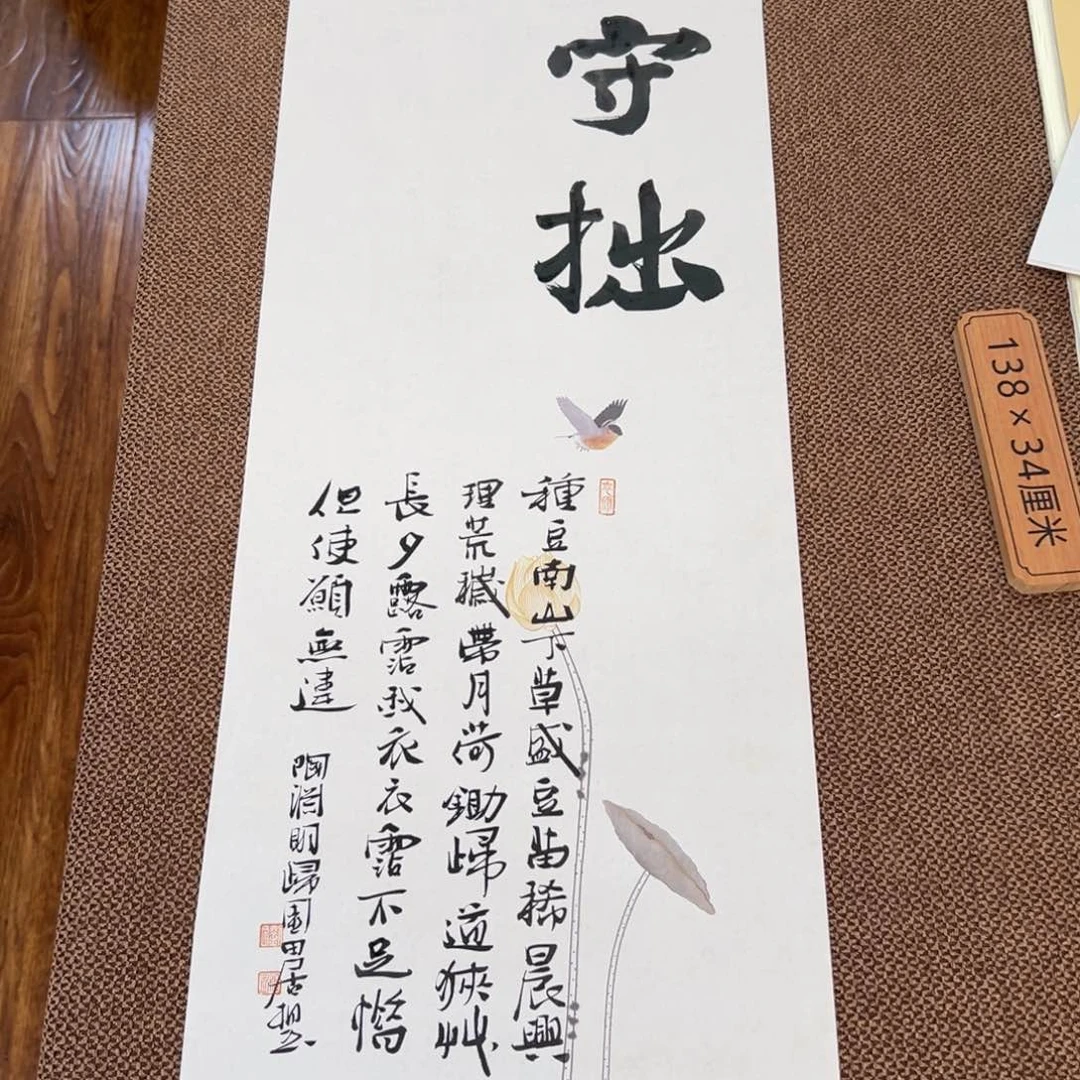 守拙
種豆南山下草盛豆苗稀晨興
理荒穢帶月荷鋤歸道狹艸
長夕露霑我衣衣霑不足惜
但使願無違
陶淵明歸園田居
138×34厘米